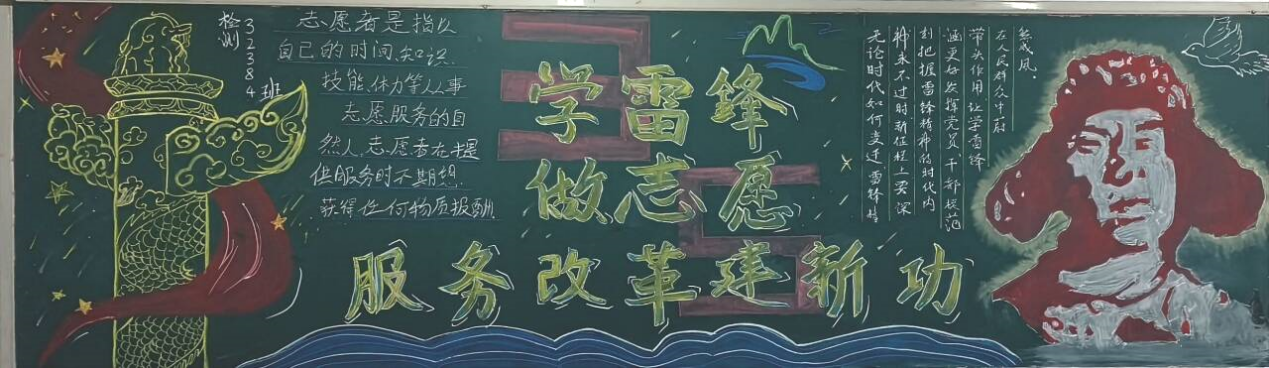 检测
323384
班
志愿者是指以
自己的时间、知识、
技能、体力等从事
志愿服务的自
然人,志愿者在提
供服务时不期望
获得任何物质报酬
3
5
学雷鋒
做志愿
服务改革建新功
无论时代如何变迁雷锋精
神永不过时新征程上要深
刻把握雷锋精神的时代内
涵更好发挥党员干部模范
带头作用让学雷锋
在人民群众中蔚
然成风